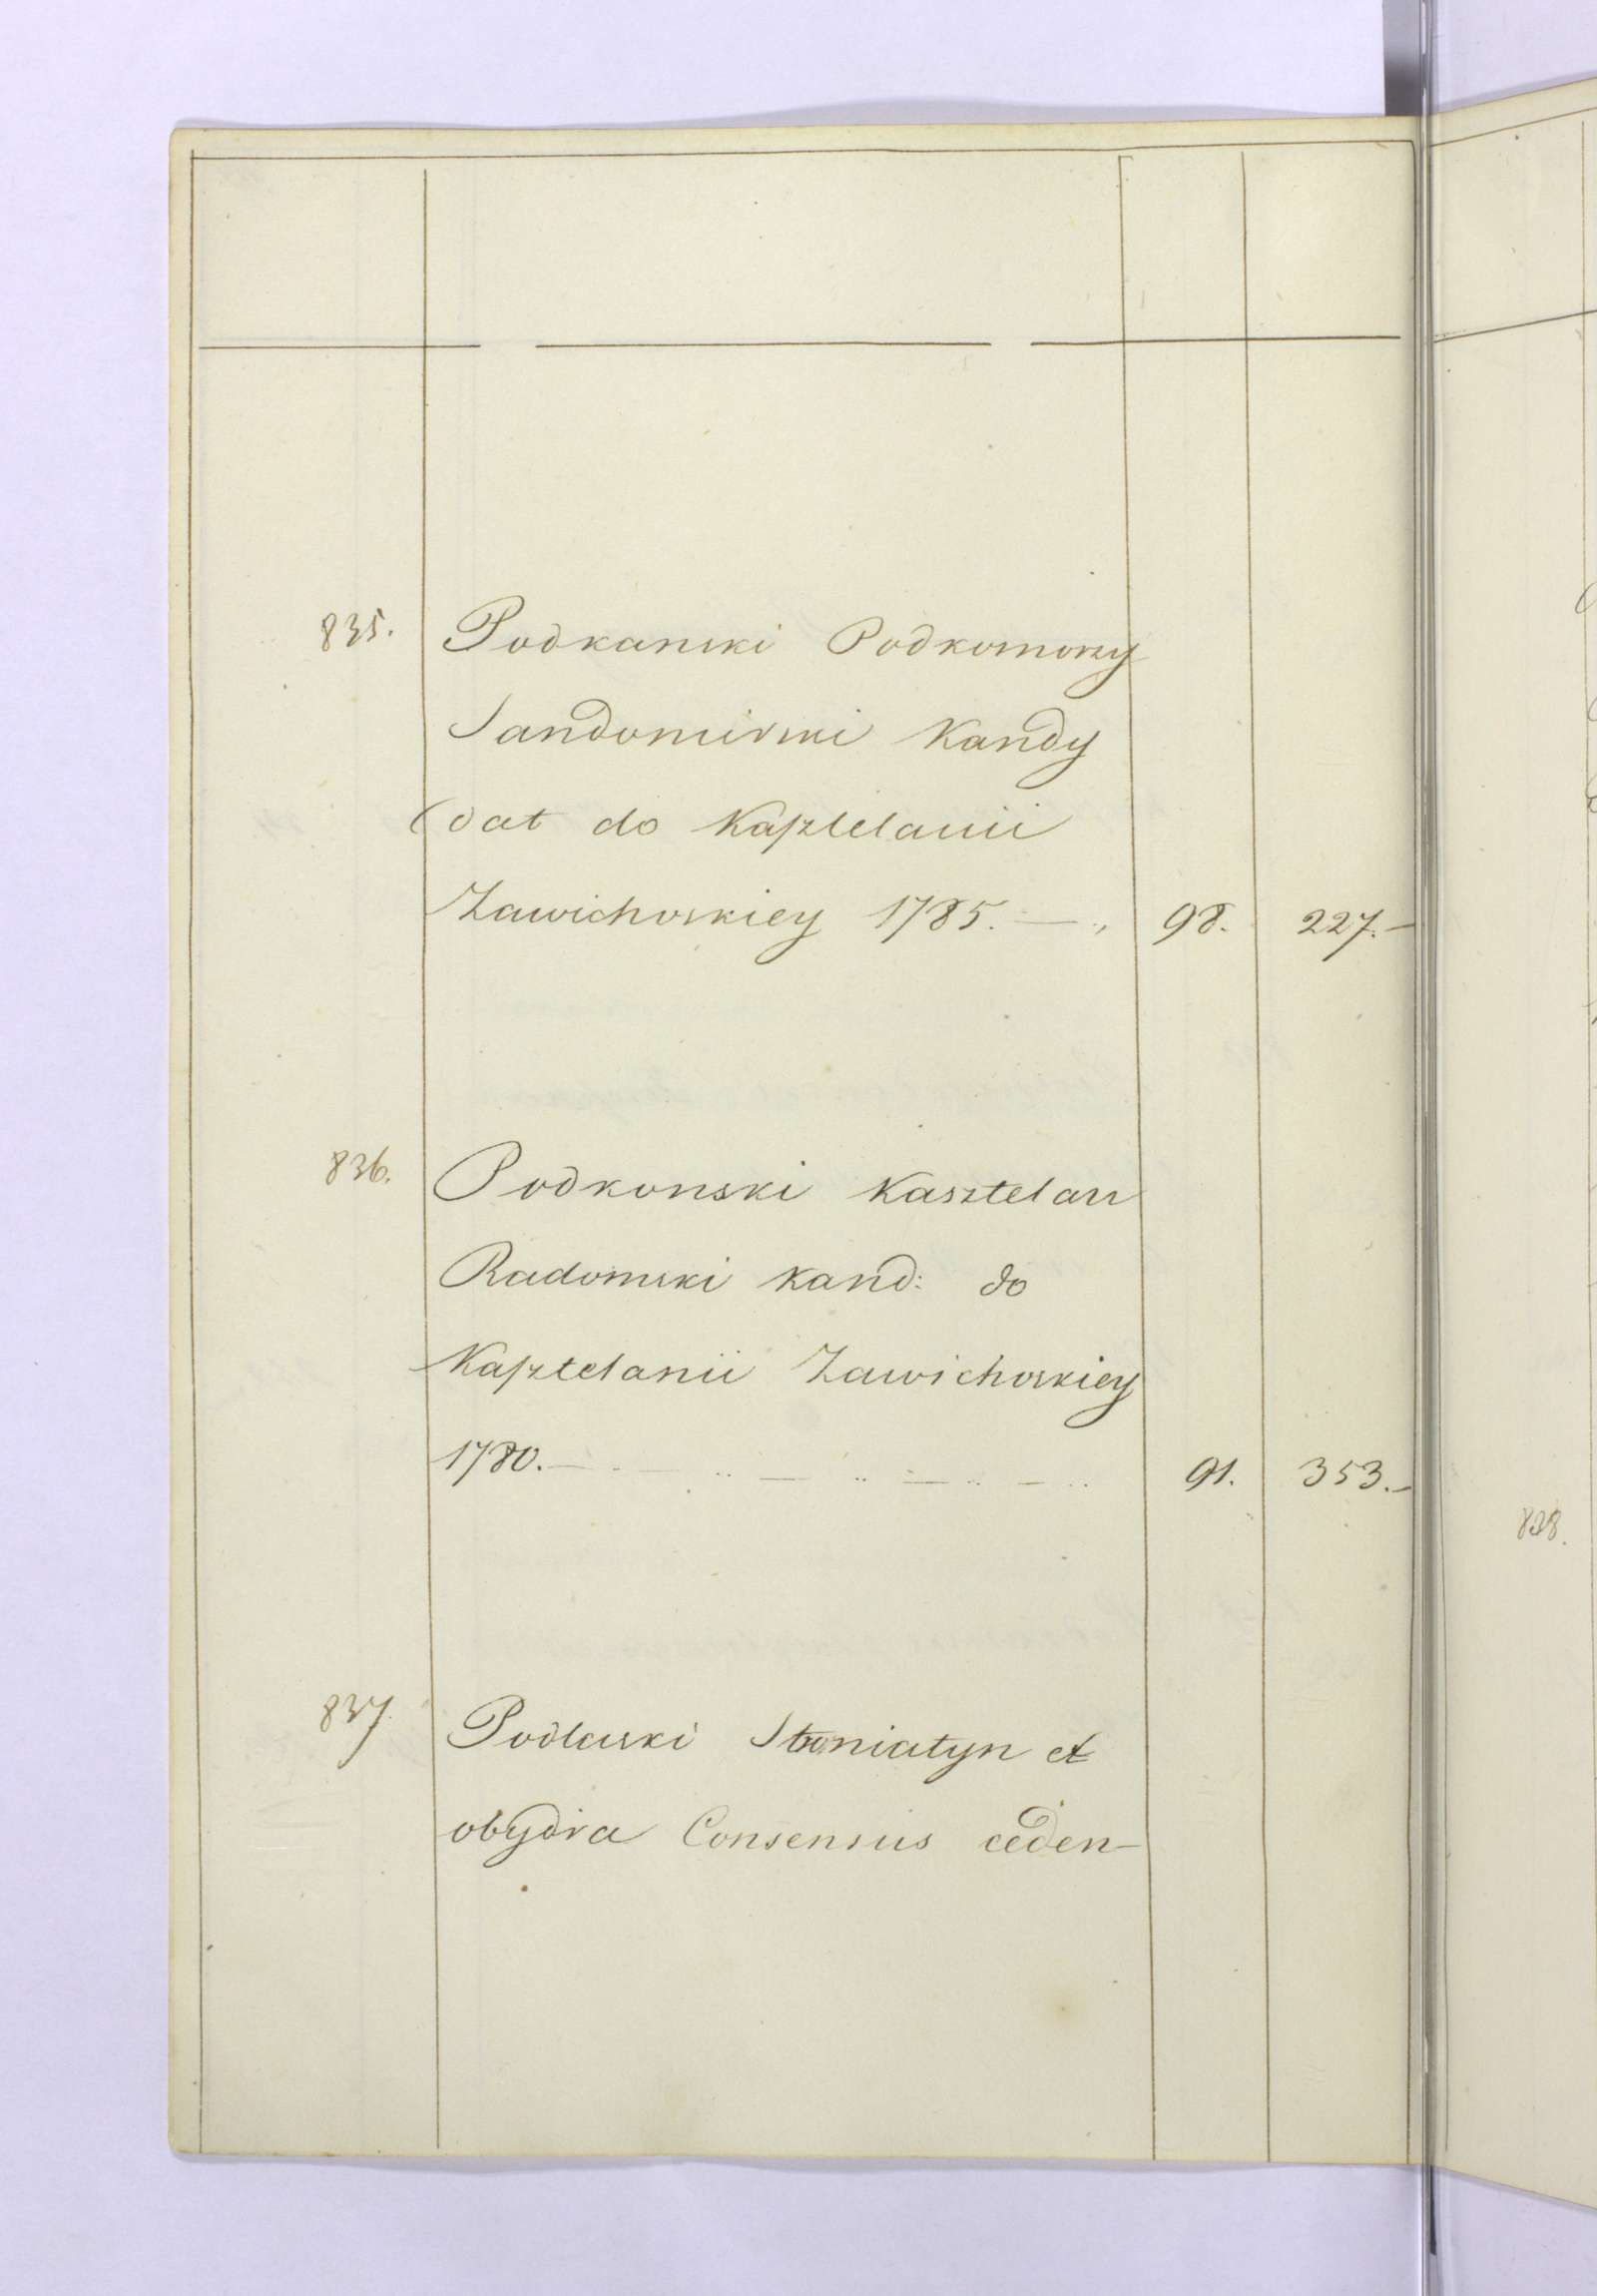 835. Podkanski Podkomorzy
Sandomirski Kandy
dat do Kasztelanii
Zawichoskiey 1785. — 98. 227.—
836. Podkonski Kasztelan
Radomski Kand: do
Kasztelanii Zawichoskiey
1780. — 91. 353.—
837. Podlaski Stoniatyn et
obydra Consensus ceden-
838.